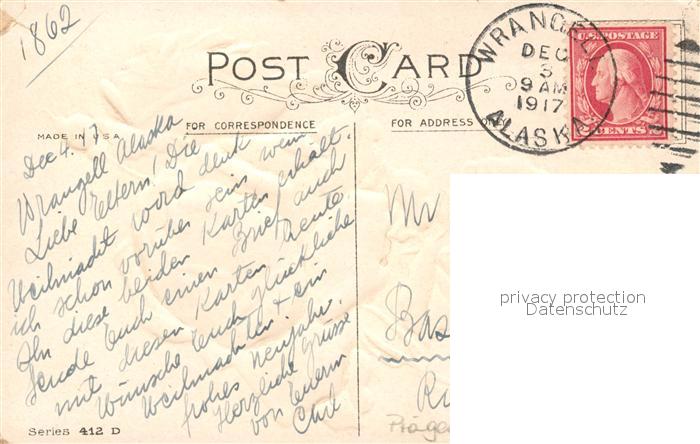 1862
POST CARD
WRANGELL
DEC
5
9 AM
1917
ALASKA
U.S. POSTAGE
CENTS
MADE IN U.S.A.
FOR CORRESPONDENCE
FOR ADDRESS
Dec 4. 17
Wrangell Alaska
Liebe Eltern! Die
Weihnacht word denk
ich schon vorüber sein wenn
Ihr diese beiden Karten erhält.
Sende Euch einen Brief auch
mit diesen Karten heute.
Wünsche Euch glückliche
Weihnachten & ein
frohes Neujahr.
Herzliche Grüsse
von Euerm
Mr
Bas
privacy protection
Datenschutz
Präge
Series 412 D